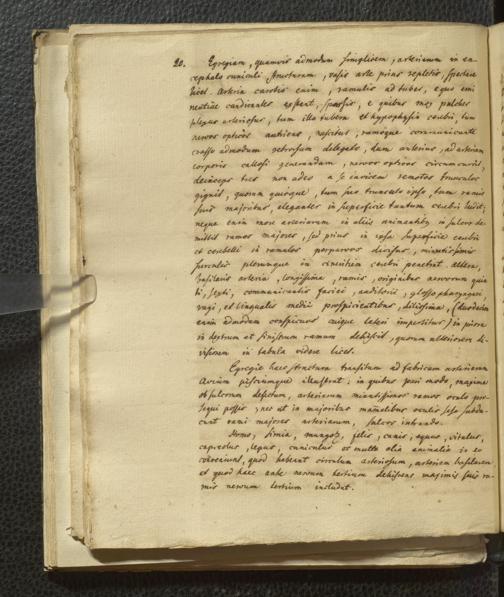 20. Egregiam, quamvis admodum simplicem, arteriarum in en-
cephalo cuniculi structuram, vasis arte prius repletis, spectare
licet. Arteria carotis enim, ramulis ad tuber, eque emi
nentiae candicantes extant, sparsis, e quibus mox pulcher
plexus arteriosus, tum illa tubera et hypophysin cerebri, tum
nervos opticos nutriens, nascitur, ramoque communicante
crasso admodum retrorsum delegato, dum anterius, ad arteriam
corporis callosi generandam, nervos opticos circumcurrit,
deinceps tres non adeo a se invicem remotos truncos
gignit, quorum quisque, tum suo trunculo ipso, tum ramis
suis majoribus, eleganter in superficie tantum cerebri ludit;
neque enim more arteriarum in aliis animantibus in sulcos de-
mittit ramos majores, sed prius in ipsa superficie cerebri
et cerebelli in ramulos perparvos divisus, minutissimis
surculis plerumque in cineritiem cerebri penetrat. Altera,
basilaris arteria, longissima, ramis, originibus nervorum quin
ti, sexti, communicantis faciei, auditorii, glossopharyngei,
vagi, et lingualis medii prospicientibus, ditissima, (duodecim
enim admodum conspicuos cuique lateri impertitur) in
dextrum et sinistrum ramum dehiscit, quorum ulteriorem di-
visionem in tabula videre licet.
Egregie haec structura transitum ad fabricam arteriarum
Avium pisciumque illustrat, in quibus pari modo, maxime
ob sulcorum defectum, arteriarum minutissimos ramos oculo per-
sequi possis, nec ut in majoribus mammalibus oculis sese subdu-
cunt rami majores arteriarum, sulcos intrando.
Homo, simia, felis, canis, equus, vitulus,
capreolus, lepus, cuniculus et multa alia animalia in eo
conveniunt, quod habeant circulum arteriosum, arteriam basilarem
et quod haec ante nervum tertium dehiscens maximis suis ra-
mis nervum tertium includat.